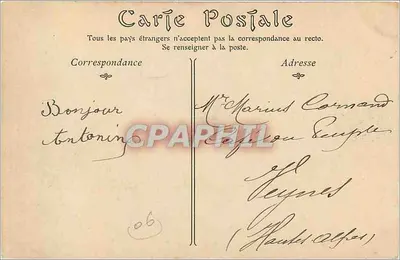 Carte Postale
Tous les pays étrangers n'acceptent pas la correspondance au recto.
Se renseigner à la poste.
Correspondance
Adresse
Bonjour
Antonin
Mr Marius Cornand
Café du Peuple
Veynes
(Hautes Alpes)
CPAPHIL
06